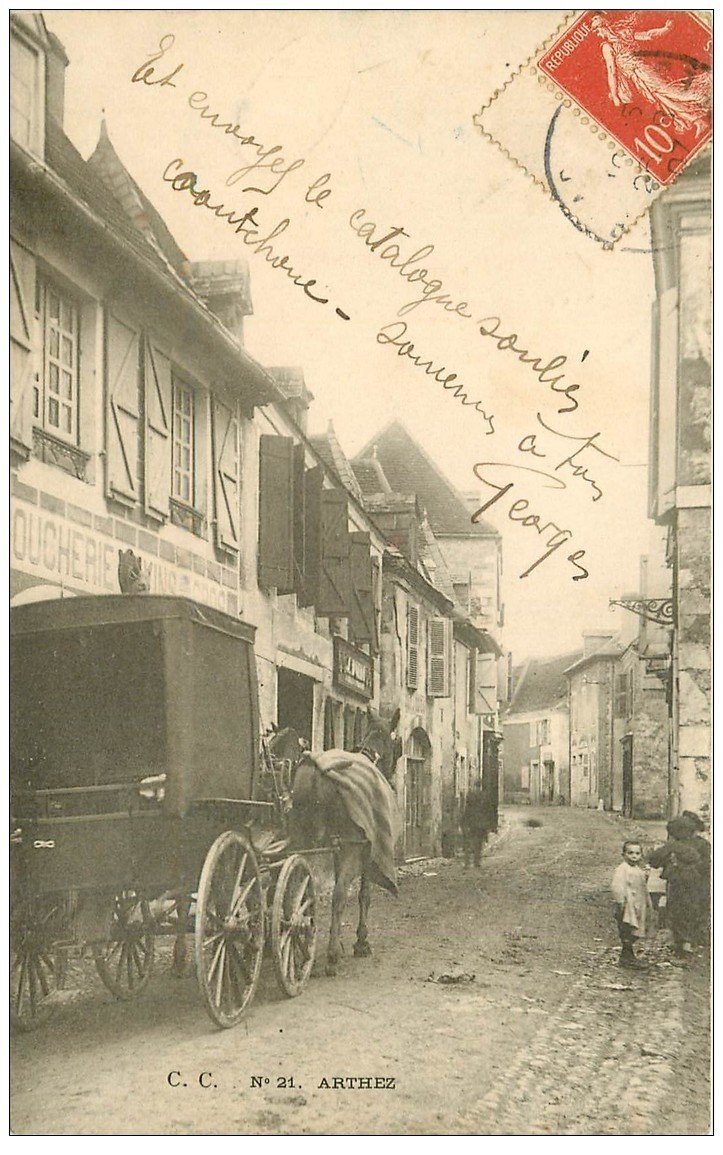 REPUBLIQUE
10c
Et envoyez le catalogue souliers
caoutchouc - Souvenirs à tous
Georges
OUCHERIE VINS
C. C. N° 21. ARTHEZ